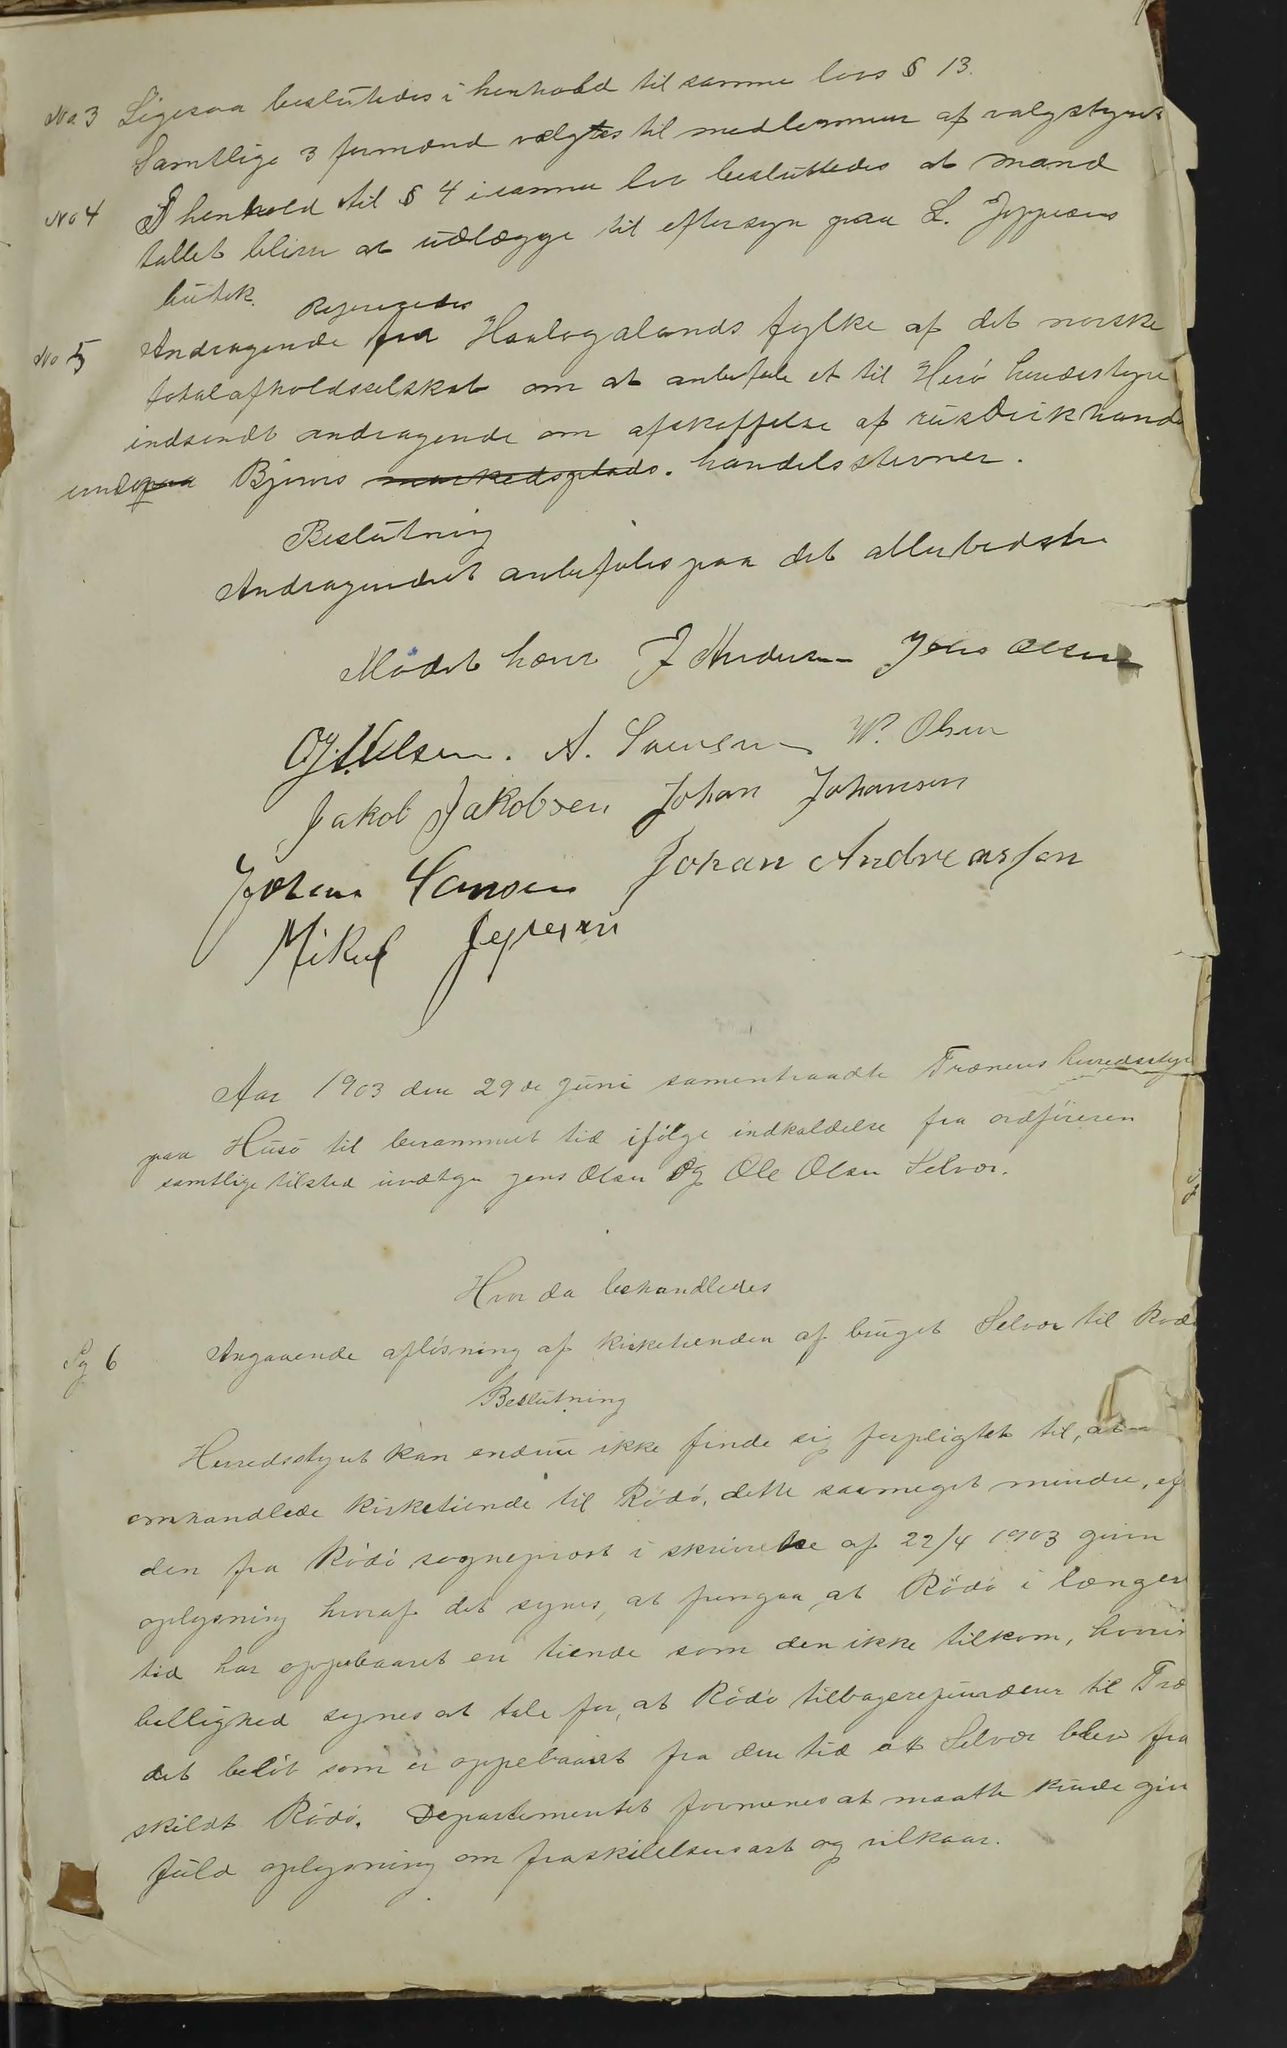 No 3 Ligesaa beslutedes i henhold til samme lovs § 13.
Samtlige 3 formænd vælgtes til medlemmer af valgstyre
No 4 I henhold til § 4 i samme lov besluttedes at mand
tallet bliver at udlægge til eftersyn paa L. Jeppesens
butik.
Refereredes
No 5 Andragende fra Haalogalands fylke af det norske
totalafholdsselskab om at anbefale et til Herö herredsstyre
indsendt andragende om afskaffelse af rusdrikhand
under Bjørns markedsplads. handelsstevner.
Beslutning
Andragendet anbefales paa det allerbedste
Mödet hævet J Andersen Jens Olsen
A. W. Olsen
Jakob Jakobsen Johan Johansen
Johan Hansen Johan Andreassen
Mikal Jeppesen
Aar 1903 den 29de Juni samentraadte Trænens herredsstyre
paa Husö til berammet tid ifölge indkaldelse fra ordföreren
samtlige tilsted undtagen Jens Olsen og Ole Olsen Selvær.
Hvor da behandledes
Sg 6 Angaaende aflösning af kirketienden af bruget Selvær til Rödö
Beslutning
Herredsstyret kan endnu ikke finde sig forpligtet til, at
omhandlede kirketiende til Rödö, dette saameget mindre, ef
den fra Rödö sogneprest i skrivelse af 22/4 1903 given
oplysning hvoraf det synes, at fremgaa, at Rödö i længere
tid har oppebaaret en tiende som den ikke tilkom, hvorfor
billighed synes at tale for, at Rödö tilbagerefunderer til Træ
det belöb som er oppebaaret fra den tid at Selvær blev fra
skildt Rödö. Departementet formenes at maatte kunde give
fuld oplysning om fraskillelsens art og vilkaar.